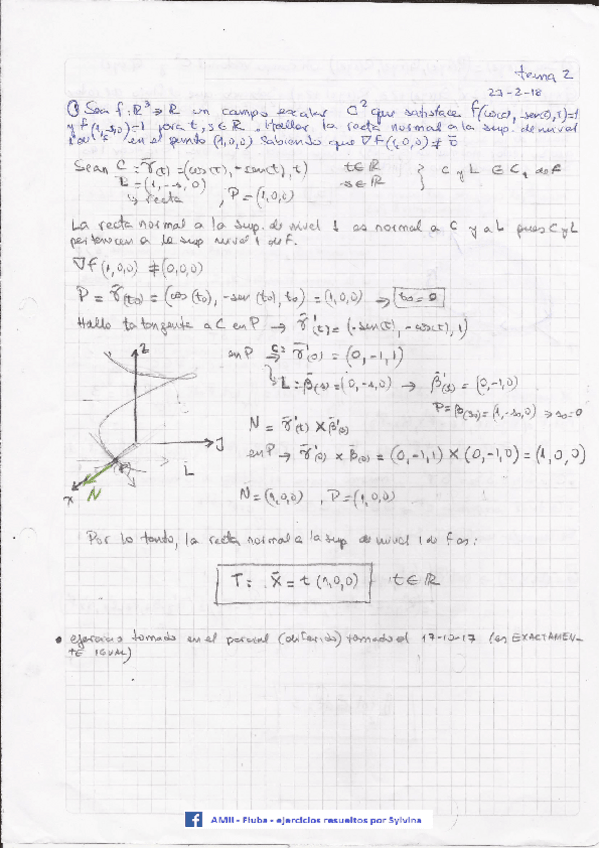 tema 2
27-2-18
① Sea f: ℝ³→ℝ un campo escalar C² que satisface f(cos(t), -sen(t), t)=1
y f(1,-s,0)=1 para t, s ∈ ℝ. Hallar la recta normal a la sup. de nivel
1 de f en el punto (1,0,0) sabiendo que ∇f(1,0,0) ≠ 0̄
Sean C: r̄(t) = (cos(t), -sen(t), t) t∈ℝ } C y L ∈ C₁ de F
L = (1, -s, 0) -s∈ℝ
↳ recta , P = (1,0,0)
La recta normal a la sup. de nivel 1 es normal a C y a L pues C y L
pertenecen a la sup nivel 1 de f.
∇f(1,0,0) ≠ (0,0,0)
P = r̄(t₀) = (cos(t₀), -sen(t₀), t₀) = (1,0,0) → t₀ = 0
Hallo la tangente a C en P → r̄'(t) = (-sen(t), -cos(t), 1)
en P → C: r̄'(0) = (0,-1,1)
↳ L = β̄(s) = (0,-s,0) → β̄'(s) = (0,-1,0)
P = β(s₀) = (1,-s₀,0) → s₀=0
N = r̄'(t) × β̄'(s)
en P → r̄'(0) × β̄(0) = (0,-1,1) × (0,-1,0) = (1,0,0)
z
y
L
x
N
N = (1,0,0) , P = (1,0,0)
Por lo tanto, la recta normal a la sup de nivel 1 de f es:
T: x̄ = t (1,0,0) t∈ℝ
• ejercicio tomado en el parcial tomado el 17-10-17 (es EXACTAMEN-
TE IGUAL)
AMII - Fiuba - ejercicios resueltos por Sylvina